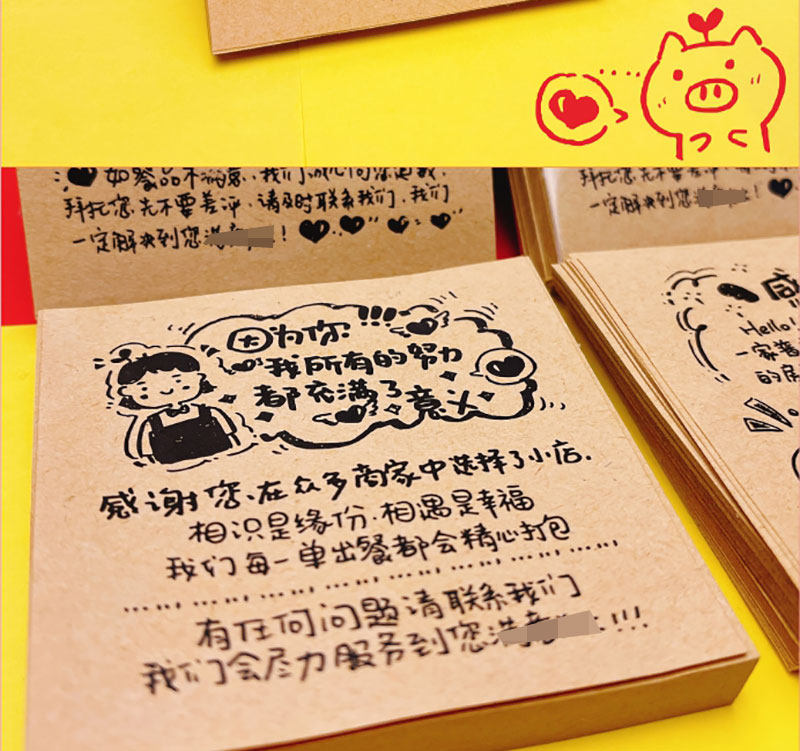 如餐品不满意、我们诚心向您道歉，
拜托您先不要差评，请及时联系我们，我们
一定解决到您
！
拜托您先不要差评
一定解决到您
感
Hello!
一家
的
因为你!!!
我所有的努力
都充满了意义
感谢您、在众多商家中选择了小店.
相识是缘份.相遇是幸福
我们每一单出餐都会精心打包
有任何问题请联系我们
我们会尽力服务到您
!!!